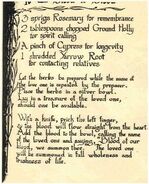 3 sprigs Rosemary for remembrance
2 tablespoons chopped Ground Holly
for spirit calling
A pinch of Cypress for longevity
1 shredded Yarrow Root
for contacting relatives
Let the herbs be prepared while the name of
the love one is repeated, by the preparer.
Place the herbs in a silver bowl.
in a treasure of the loved
one, should one be available.
With a knife, prick the left finger,
so the blood will flow straight from the heart.
Add the blood to the bowl, calling the name
of the loved one and saying, "Blood of our
blood, we summon thee." The loved one
will be summoned in full wholeness and
brightness of life.